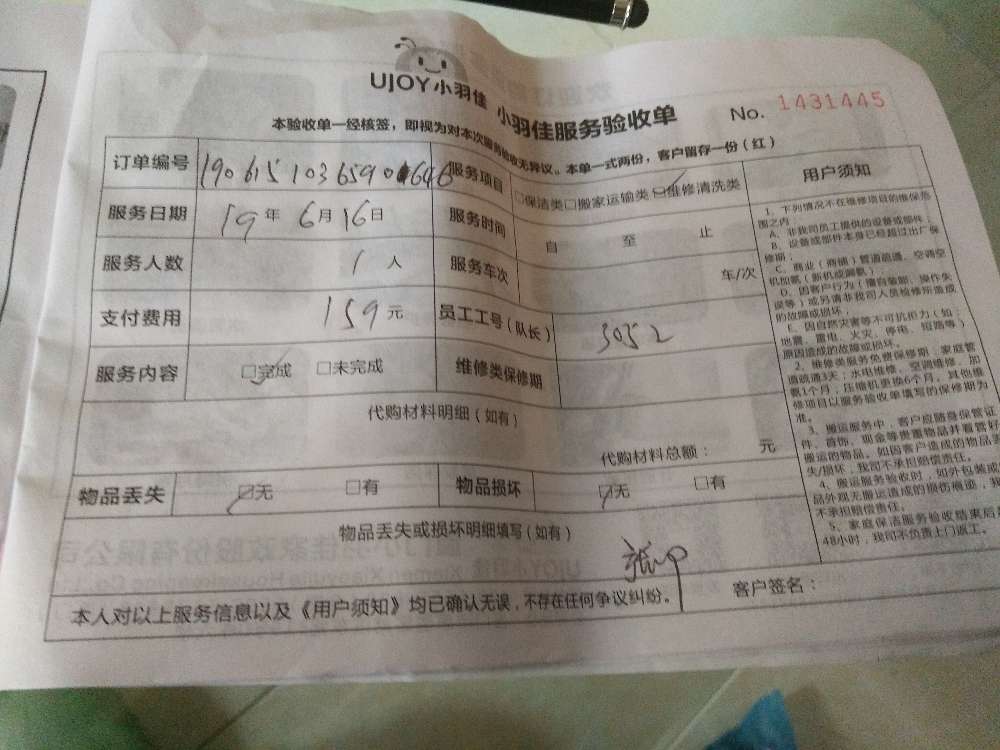 UJOY小羽佳 小羽佳服务验收单 No. 1431445
本验收单一经核签，即视为对本次服务验收无异议。本单一式两份，客户留存一份(红)
订单编号 服务项目 □保洁类□搬家运输类☑维修清洗类
服务日期 19年6月16日 服务时间 自 至 止
服务人数 1人 服务车次 车/次
支付费用 159元 员工工号(队长) 5052
服务内容 ☑完成 □未完成 维修类保修期
代购材料明细(如有)
代购材料总额： 元
物品丢失 ☑无 □有 物品损坏 ☑无 □有
物品丢失或损坏明细填写(如有)
本人对以上服务信息以及《用户须知》均已确认无误，不存在任何争议纠纷。 客户签名：
用户须知
1、下列情况不在维修项目的维保范
围之内：
A、非我司员工提供的设备或部件；
B、设备或部件本身已经超过出厂保
修期；
C、商业（商铺）管道疏通、空调空
机加氨（新机或漏氨）；
D、因客户行为（擅自装卸、操作失
误等）或另请非我司人员检修所造成
的故障或损坏。
E、因自然灾害等不可抗拒力（如：
地震、雷电、火灾、停电、短路等）
原因造成的故障或损坏。
2、维修类服务免费保修期：家庭管
道疏通3天；水电维修、空调维修、加
氨1个月；压缩机更换6个月。其他维
修项目以服务验收单填写的保修期为
准。
3、搬运服务中，客户应随身保管证
件、首饰、现金等贵重物品并看管好
搬运的物品。如因客户造成的物品
失/损坏，我司不承担赔偿责任。
4、搬运服务验收时，如外包装或
品外观无搬运造成的损伤痕迹，我
不承担赔偿责任。
5、家庭保洁服务验收结束后
48小时，我司不负责上门返工。